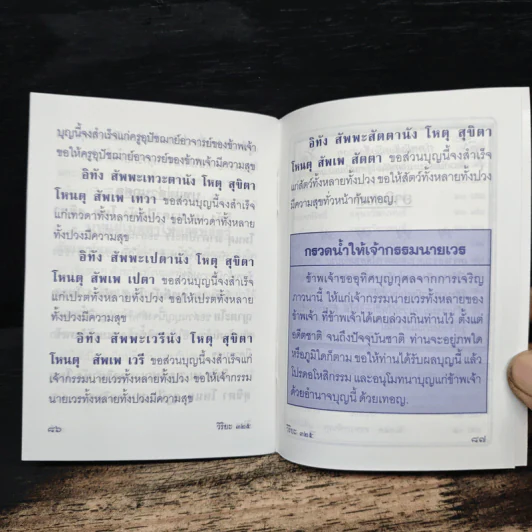 บุญนี้จงสำเร็จแก่ครูอุปัชฌาย์อาจารย์ของข้าพเจ้า
ขอให้ครูอุปัชฌาย์อาจารย์ของข้าพเจ้ามีความสุข
อิทัง สัพพะเทวะตานัง โหตุ สุขิตา
โหนตุ สัพเพ เทวา ขอส่วนบุญนี้จงสำเร็จ
แก่เทวดาทั้งหลายทั้งปวง ขอให้เทวดาทั้งหลาย
ทั้งปวงมีความสุข
อิทัง สัพพะเปตานัง โหตุ สุขิตา
โหนตุ สัพเพ เปตา ขอส่วนบุญนี้จงสำเร็จ
แก่เปรตทั้งหลายทั้งปวง ขอให้เปรตทั้งหลาย
ทั้งปวงมีความสุข
อิทัง สัพพะเวรีนัง โหตุ สุขิตา
โหนตุ สัพเพ เวรี ขอส่วนบุญนี้จงสำเร็จแก่
เจ้ากรรมนายเวรทั้งหลายทั้งปวง ขอให้เจ้ากรรม
นายเวรทั้งหลายทั้งปวงมีความสุข
๘๖
วิริยะ ๓๒๕
อิทัง สัพพะสัตตานัง โหตุ สุขิตา
โหนตุ สัพเพ สัตตา ขอส่วนบุญนี้จงสำเร็จ
แก่สัตว์ทั้งหลายทั้งปวง ขอให้สัตว์ทั้งหลายทั้งปวง
มีความสุขทั่วหน้ากันเทอญ.
กรวดน้ำให้เจ้ากรรมนายเวร
ข้าพเจ้าขออุทิศบุญกุศลจากการเจริญ
ภาวนานี้ ให้แก่เจ้ากรรมนายเวรทั้งหลายของ
ข้าพเจ้า ที่ข้าพเจ้าได้เคยล่วงเกินท่านไว้ ตั้งแต่
อดีตชาติ จนถึงปัจจุบันชาติ ท่านจะอยู่ภพใด
หรือภูมิใดก็ตาม ขอให้ท่านได้รับผลบุญนี้ แล้ว
โปรดอโหสิกรรม และอนุโมทนาบุญแก่ข้าพเจ้า
ด้วยอำนาจบุญนี้ ด้วยเทอญ.
วิริยะ ๓๒๕
๘๗